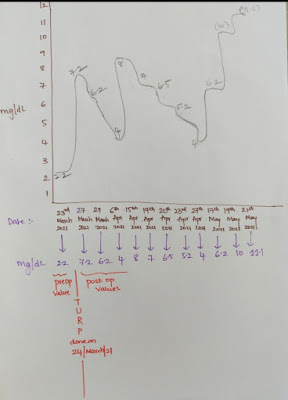 12
11
10
9
8
7
6
5
4
3
2
1
mg/dL
2.2
7.2
6.2
4
8
7
6.5
5.2
4
6.2
(10)
Date :-
23rd March 2021
27 March 2021
29 March 2021
6th Apr 2021
15th Apr 2021
19th Apr 2021
23rd Apr 2021
27th Apr 2021
17th May 2021
19th May 2021
21st May 2021
mg/dL
2.2 7.2 6.2 4 8 7 6.5 5.2 4 6.2 10 11.1
preop value
post op values
T
U
R
P
done on
24/March/21